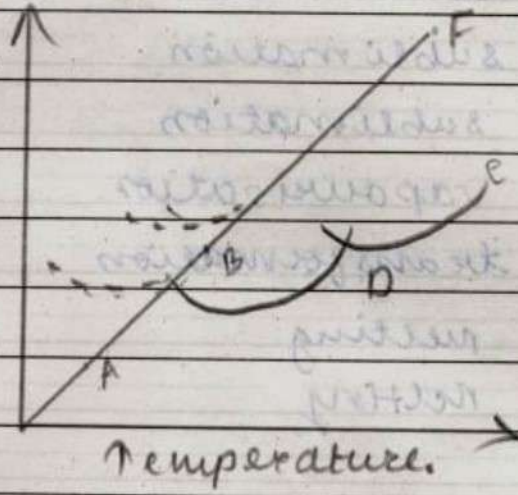 F
C
B
D
A
Temperature.